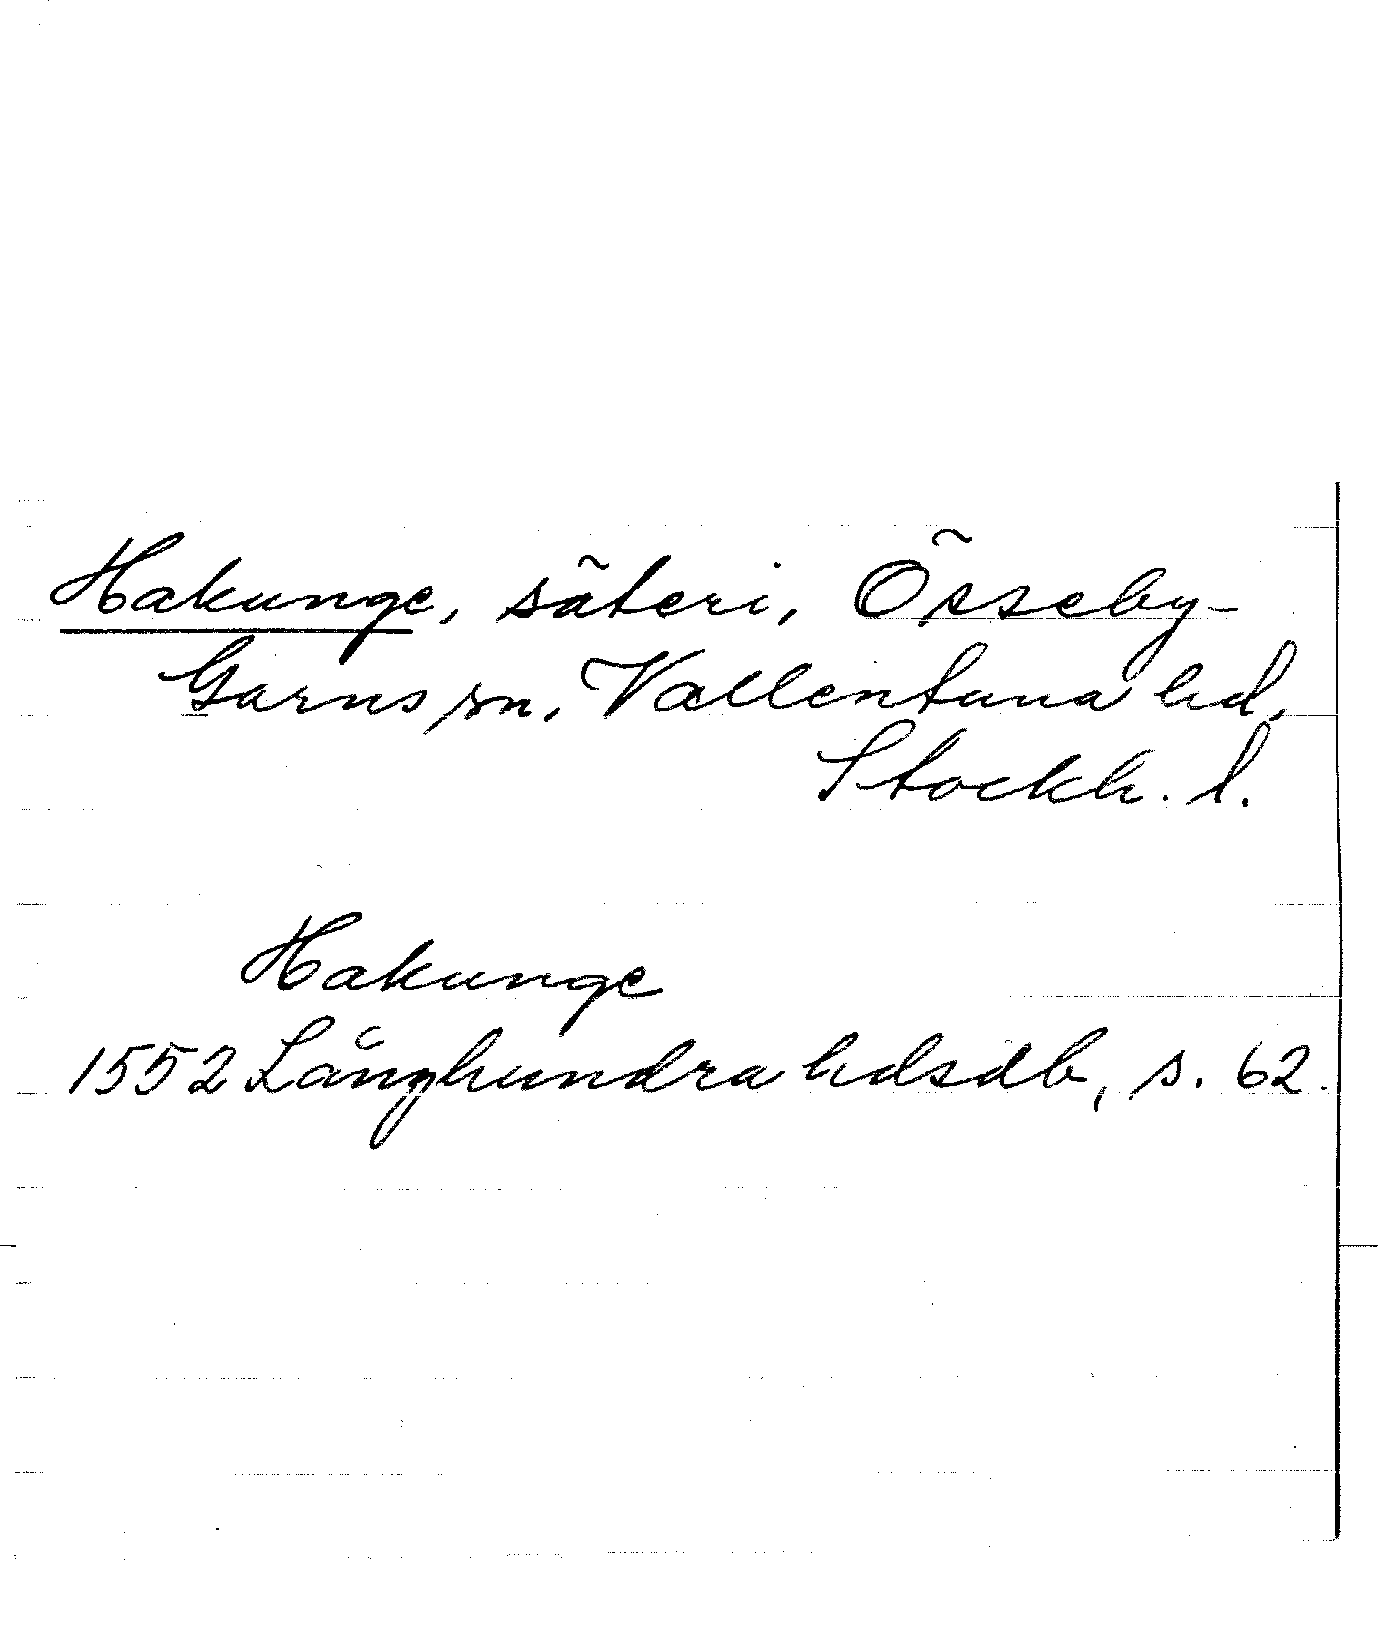 Hakunge, säteri, Össeby-
Garns sn, Vallentuna hd,
Stockh. l.
Hakunge
1552 Långhundra hdsdb, s. 62.